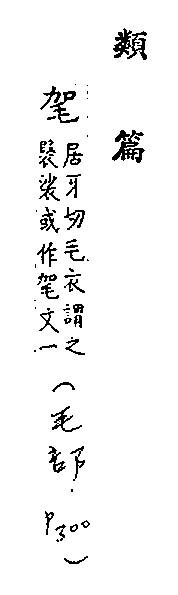 類篇
毠居牙切毛衣謂之
䯯裟或作毠文一
(毛部.P.300)